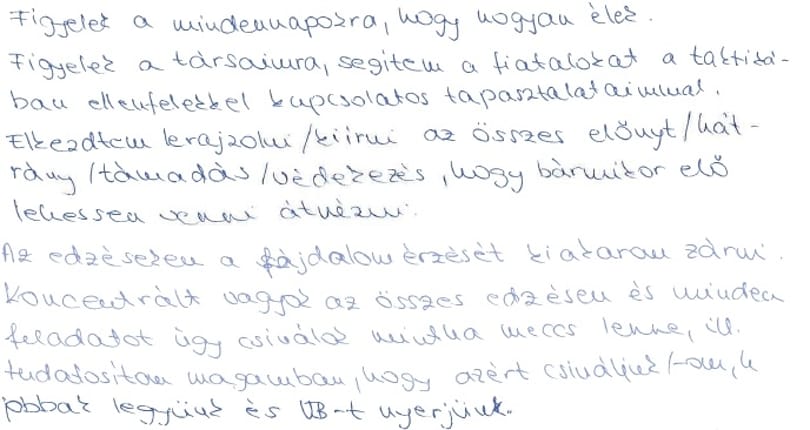 Figyelek a mindennapokra, hogy hogyan élek.
Figyelek a társaimra, segítem a fiatalokat a taktiká-
ban ellenfelekkel kapcsolatos tapasztalataimmal.
Elkezdtem lerajzolni/kiírni az összes előnyt/hát-
rány/támadás/védekezés, hogy bármikor elő
lehessen venni átnézni.
Az edzéseken a fájdalom érzését kiakarom zárni.
Koncentrált vagyok az összes edzésen és minden
feladatot úgy csinálok mintha meccs lenne, ill.
tudatosítom magamban, hogy azért csináljuk/-om, h
jobbak legyünk és VB-t nyerjünk.